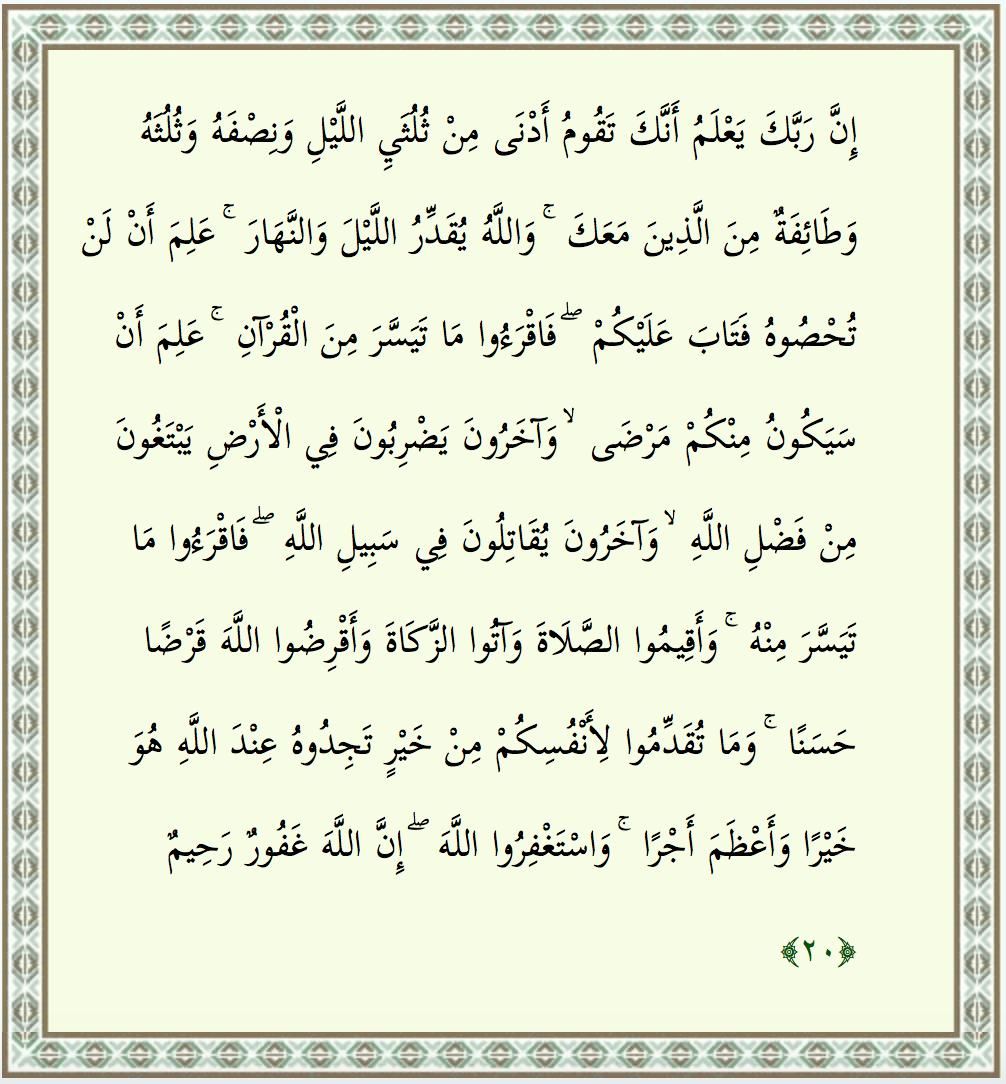 إِنَّ رَبَّكَ يَعْلَمُ أَنَّكَ تَقُومُ أَدْنَى مِنْ ثُلُثَيِ اللَّيْلِ وَنِصْفَهُ وَثُلُثَهُ
وَطَائِفَةٌ مِنَ الَّذِينَ مَعَكَ ۚ وَاللَّهُ يُقَدِّرُ اللَّيْلَ وَالنَّهَارَ ۚ عَلِمَ أَنْ لَنْ
تُحْصُوهُ فَتَابَ عَلَيْكُمْ ۖ فَاقْرَءُوا مَا تَيَسَّرَ مِنَ الْقُرْآنِ ۚ عَلِمَ أَنْ
سَيَكُونُ مِنْكُمْ مَرْضَى ۙ وَآخَرُونَ يَضْرِبُونَ فِي الْأَرْضِ يَبْتَغُونَ
مِنْ فَضْلِ اللَّهِ ۙ وَآخَرُونَ يُقَاتِلُونَ فِي سَبِيلِ اللَّهِ ۖ فَاقْرَءُوا مَا
تَيَسَّرَ مِنْهُ ۚ وَأَقِيمُوا الصَّلَاةَ وَآتُوا الزَّكَاةَ وَأَقْرِضُوا اللَّهَ قَرْضًا
حَسَنًا ۚ وَمَا تُقَدِّمُوا لِأَنْفُسِكُمْ مِنْ خَيْرٍ تَجِدُوهُ عِنْدَ اللَّهِ هُوَ
خَيْرًا وَأَعْظَمَ أَجْرًا ۚ وَاسْتَغْفِرُوا اللَّهَ ۖ إِنَّ اللَّهَ غَفُورٌ رَحِيمٌ
﴿٢٠﴾